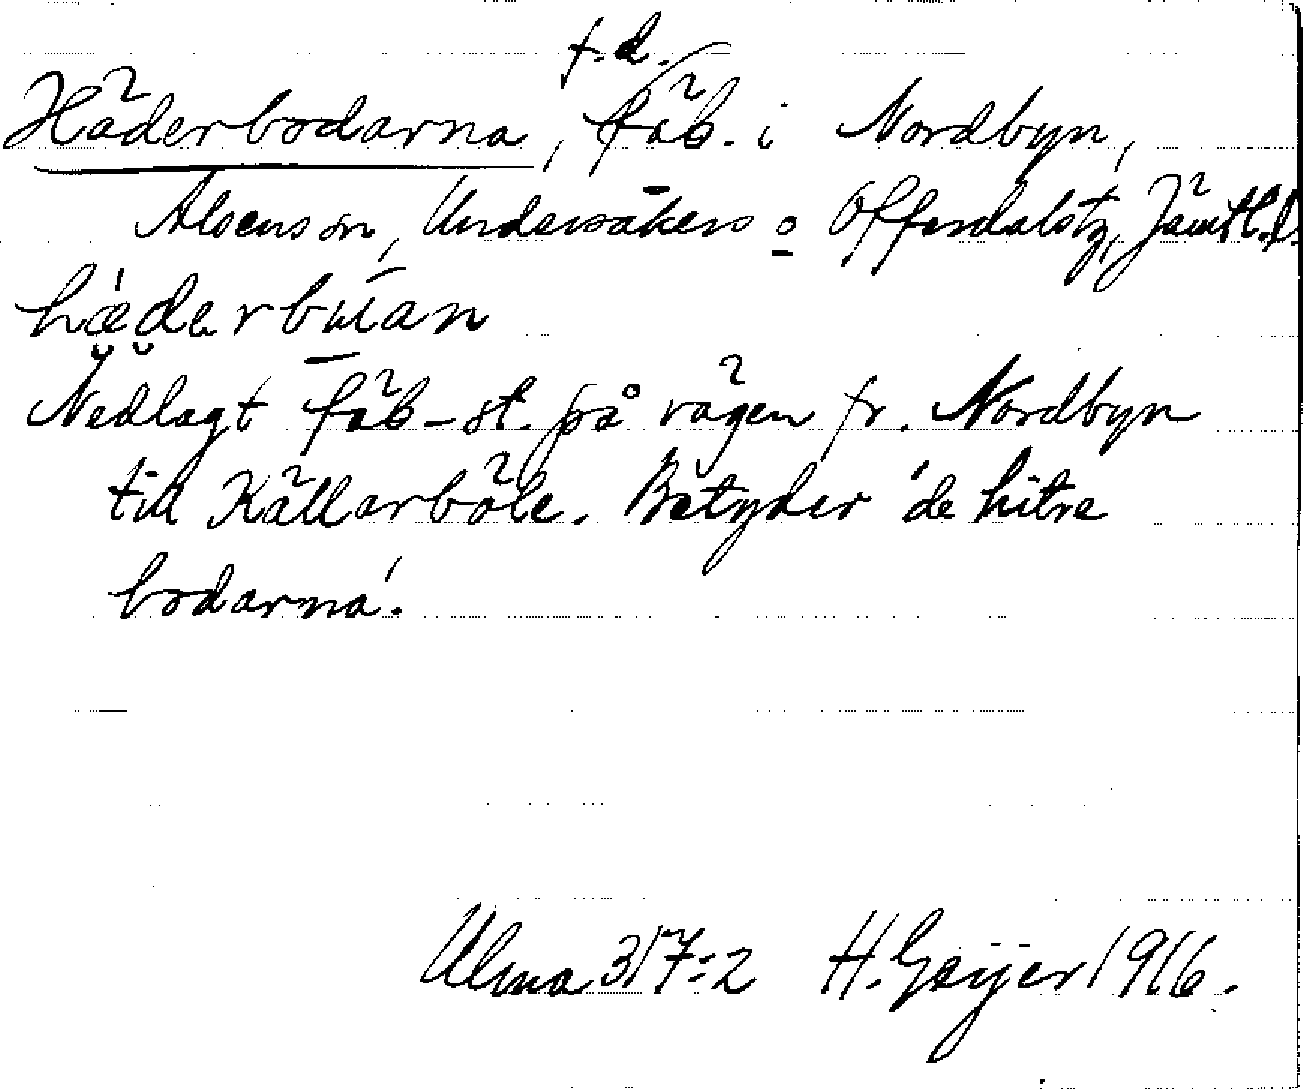 f.d.
Häderbodarna, fäb. i Nordbyn,
Alsens sn, Undersåkers o Offerdals tg, Jämtl. l.
hǽderbúan
Nedlagt fäb-st. på vägen fr. Nordbyn
till Källarböle. Betyder 'de hitre
bodarna'.
Ulma 317:2 H. Geijer 1916.